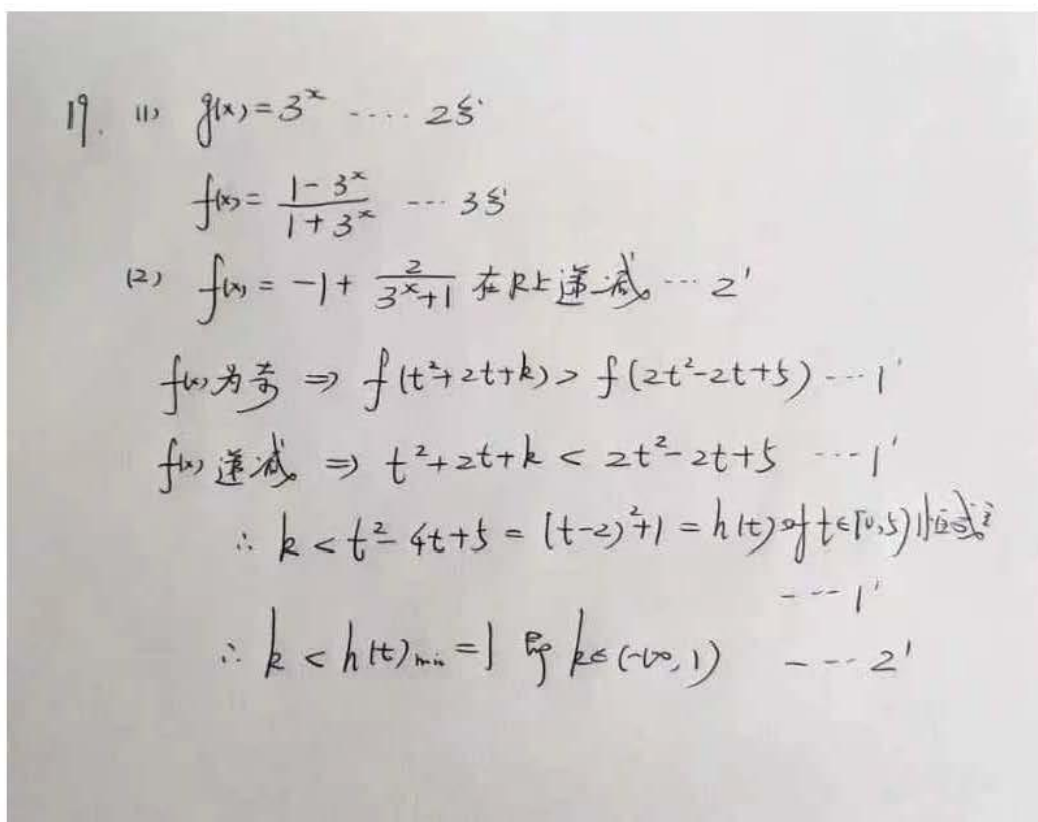 19. (1) g(x)=3^x ····· 2分
f(x)=\frac{1-3^x}{1+3^x} ··· 3分
(2) f(x)=-1+\frac{2}{3^x+1} 在R上递减 ··· 2'
f(x)为奇 ⇒ f(t²+2t+k)>f(2t²-2t+5) ··· 1'
f(x)递减 ⇒ t²+2t+k<2t²-2t+5 ··· 1'
∴ k<t²-4t+5=(t-2)²+1=h(t)对t∈[0,5)恒成立
---1'
∴ k<h(t)min=1 即 k∈(-∞,1) ----2'